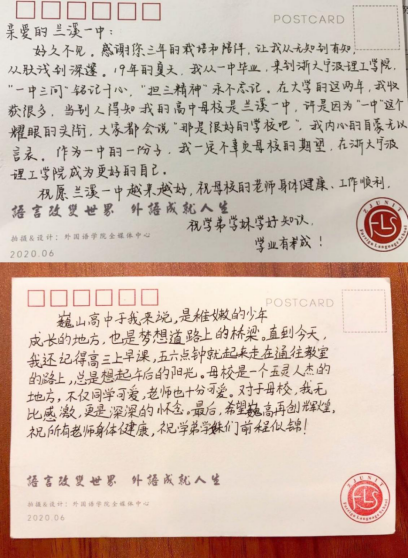 POSTCARD
亲爱的兰溪一中:
好久不见。感谢您三年的栽培和陪伴,让我从无知到有知,
从肤浅到深邃。19年的夏天,我从一中毕业,来到浙大宁波理工学院,
"一中三问"铭记于心,"担三精神"永不忘记。在大学的这两年,我收
获很多,当别人得知我的高中母校是兰溪一中,许是因为"一中"这个
耀眼的头衔,大家都会说"那是很好的学校吧",我内心的自豪无以
言表。作为一中的一份子,我一定不辜负母校的期望,在浙大宁波
理工学院成为更好的自己。
祝愿兰溪一中越来越好,祝母校的老师身体健康、工作顺利,
祝学弟学妹学好知识、
学业有成!
語言改變世界 外語成就人生
拍摄&设计:外国语学院全媒体中心
2020.06
FLS
Foreign Language School
POSTCARD
巍山高中于我来说,是稚嫩的少年
成长的地方,也是梦想道路上的桥梁。直到今天,
我还记得高三上早课,五六点钟就起来走在通往教室
的路上,总是想起午后的阳光。母校是一个五灵人杰的
地方,不仅同学可爱,老师也十分可爱。对于母校,我无
比感激,更是深深的怀念。最后,希望巍高再创辉煌,
祝所有老师身体健康,祝学弟学妹们前程似锦!
語言改變世界 外語成就人生
拍摄&设计:外国语学院全媒体中心
2020.06
FLS
Foreign Language School